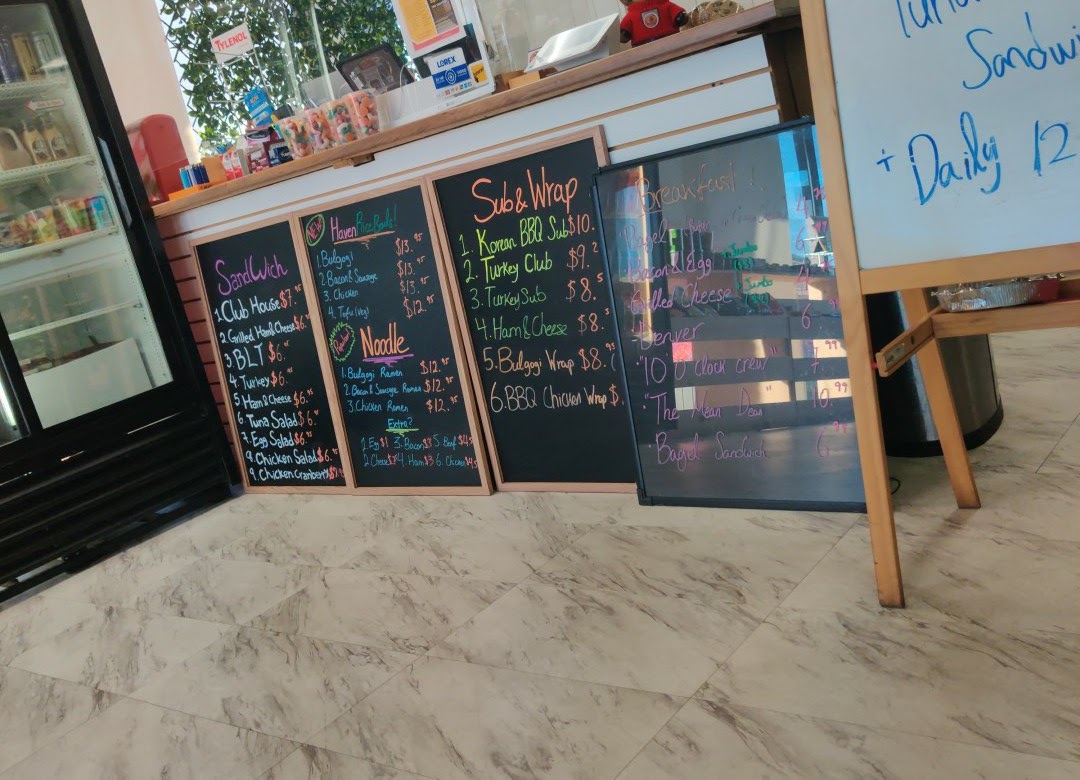 TYLENOL
LOREX
SandWich
1. Club House $7.95
2. Grilled Ham&Cheese $6.
3. BLT $6.
4. Turkey $6.
5. Ham & Cheese $6.
6. Tuna Salad $6.
7. Egg Salad $6.
9. Chicken Salad $6.
9. Chicken Cranberry
NEW
Haven Rice Bowls!
1. Bulgogi $13.95
2. Bacon & Sausage $13.
3. Chicken $13.
4. Tofu (veg) $12.
Noodle
1. Bulgogi Ramen $12.
2. Bacon & Sausage Ramen $12.
3. Chicken Ramen $12.
Extra?
1. Egg $1 3. Bacon $3 5. Beef $4
2. Cheese 4. Ham $3 6. Chicken $4
Sub & Wrap
1. Korean BBQ Sub $10.
2. Turkey Club $9.
3. Turkey Sub $8.
4. Ham & Cheese $8.
5. Bulgogi Wrap $8.
6. BBQ Chicken Wrap $.
Breakfast!
Bagel 6
Bacon & Egg
Grilled Cheese 6
Denver
"10 O'clock crew" 7.99
"The Mean Dean" 10.99
Bagel Sandwich 6.99
Sandwi
+ Daily 12